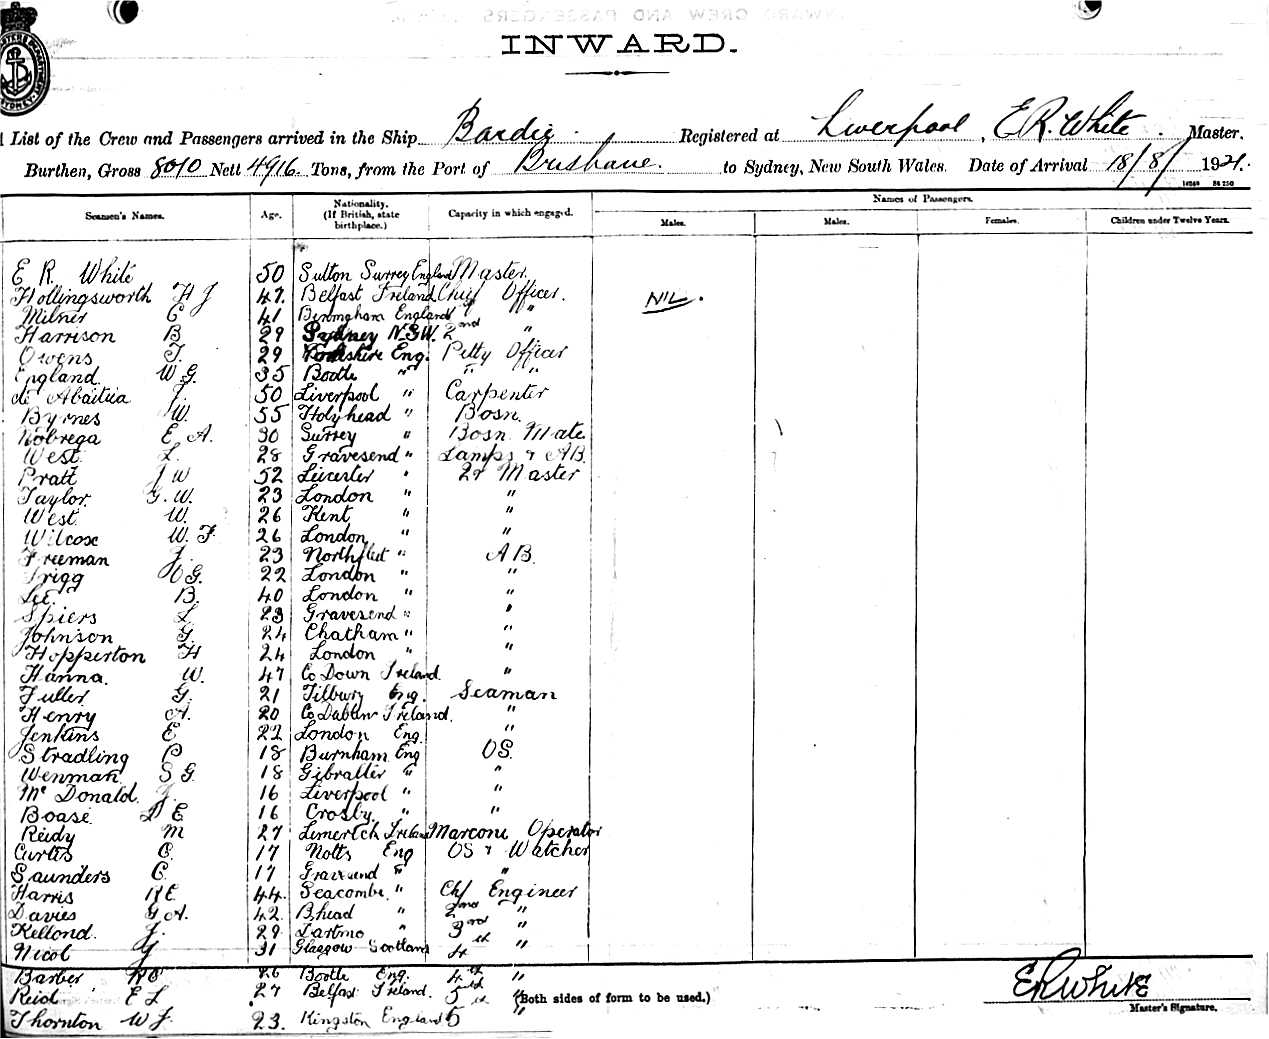 INWARD.
List of the Crew and Passengers arrived in the Ship Bardic Registered at Liverpool, E R. White. Master.
Burthen, Gross 8010 Nett 4916 Tons, from the Port of Brisbane. to Sydney, New South Wales. Date of Arrival 18/8/1921.
Seamen's Names. Age. Nationality. (If British, state birthplace.) Capacity in which engaged. Names of Passengers.
Males. Males. Females. Children under Twelve Years.
E R. White 50 Sutton Surrey England Master.
Hollingsworth H J 47. Belfast Ireland Chief Officer. NIL.
Milner C 41 Birmgham England " "
Harrison B 29 Sydney N.S.W. 2nd "
Owens T. 29 Yorkshire Eng. Petty Officer
England. W G. 35 Bootle " " "
de Abaitua J. 50 Liverpool " Carpenter
Byrnes W. 55 Holyhead " Bosn.
Nobrega E A. 30 Surrey " Bosn Mate
West L. 28 Gravesend " Lamps & AB.
Pratt J W 52 Leicester " 2r Master
Taylor. G. W. 23 London " "
West W. 26 Kent " "
Wilcox W. F 26 London " "
Freeman J. 23 Northfleet " AB.
Trigg G. 22 London " "
Lee. B. 40 London " "
Spiers L 23 Gravesend " "
Johnson G 24 Chatham " "
Hopperton H 24 London " "
Hanna. W. 47 Co Down Ireland. "
Fuller G. 21 Tilbury Eng. Seaman
Henry A. 20 Co Dublin Ireland. "
Jenkins E 22 London Eng. "
Stradling P 18 Burnham Eng OS.
Wenman S G. 18 Gibralter " "
Mc Donald. J. 16 Liverpool " "
Boase E 16 Crosby. " "
Reidy M 27 Limerick Ireland Marconi Operator
Curtis C. 17 Notts Eng OS & Watcher
Saunders C. 17 Gravesend " "
Harris R E. 44. Seacombe. " Chf Engineer
Davies G A. 42. B.head " 2nd "
Kellond. J. 29 " 3rd "
Nicol J 31 Glasgow Scotland 4th "
Barber 26 Bootle Eng. 4th "
Reid E L 27 Belfast Ireland. 5th " (Both sides of form to be used.) E R White
Thornton W J. 23. Kingston England 5 " Master's Signature.